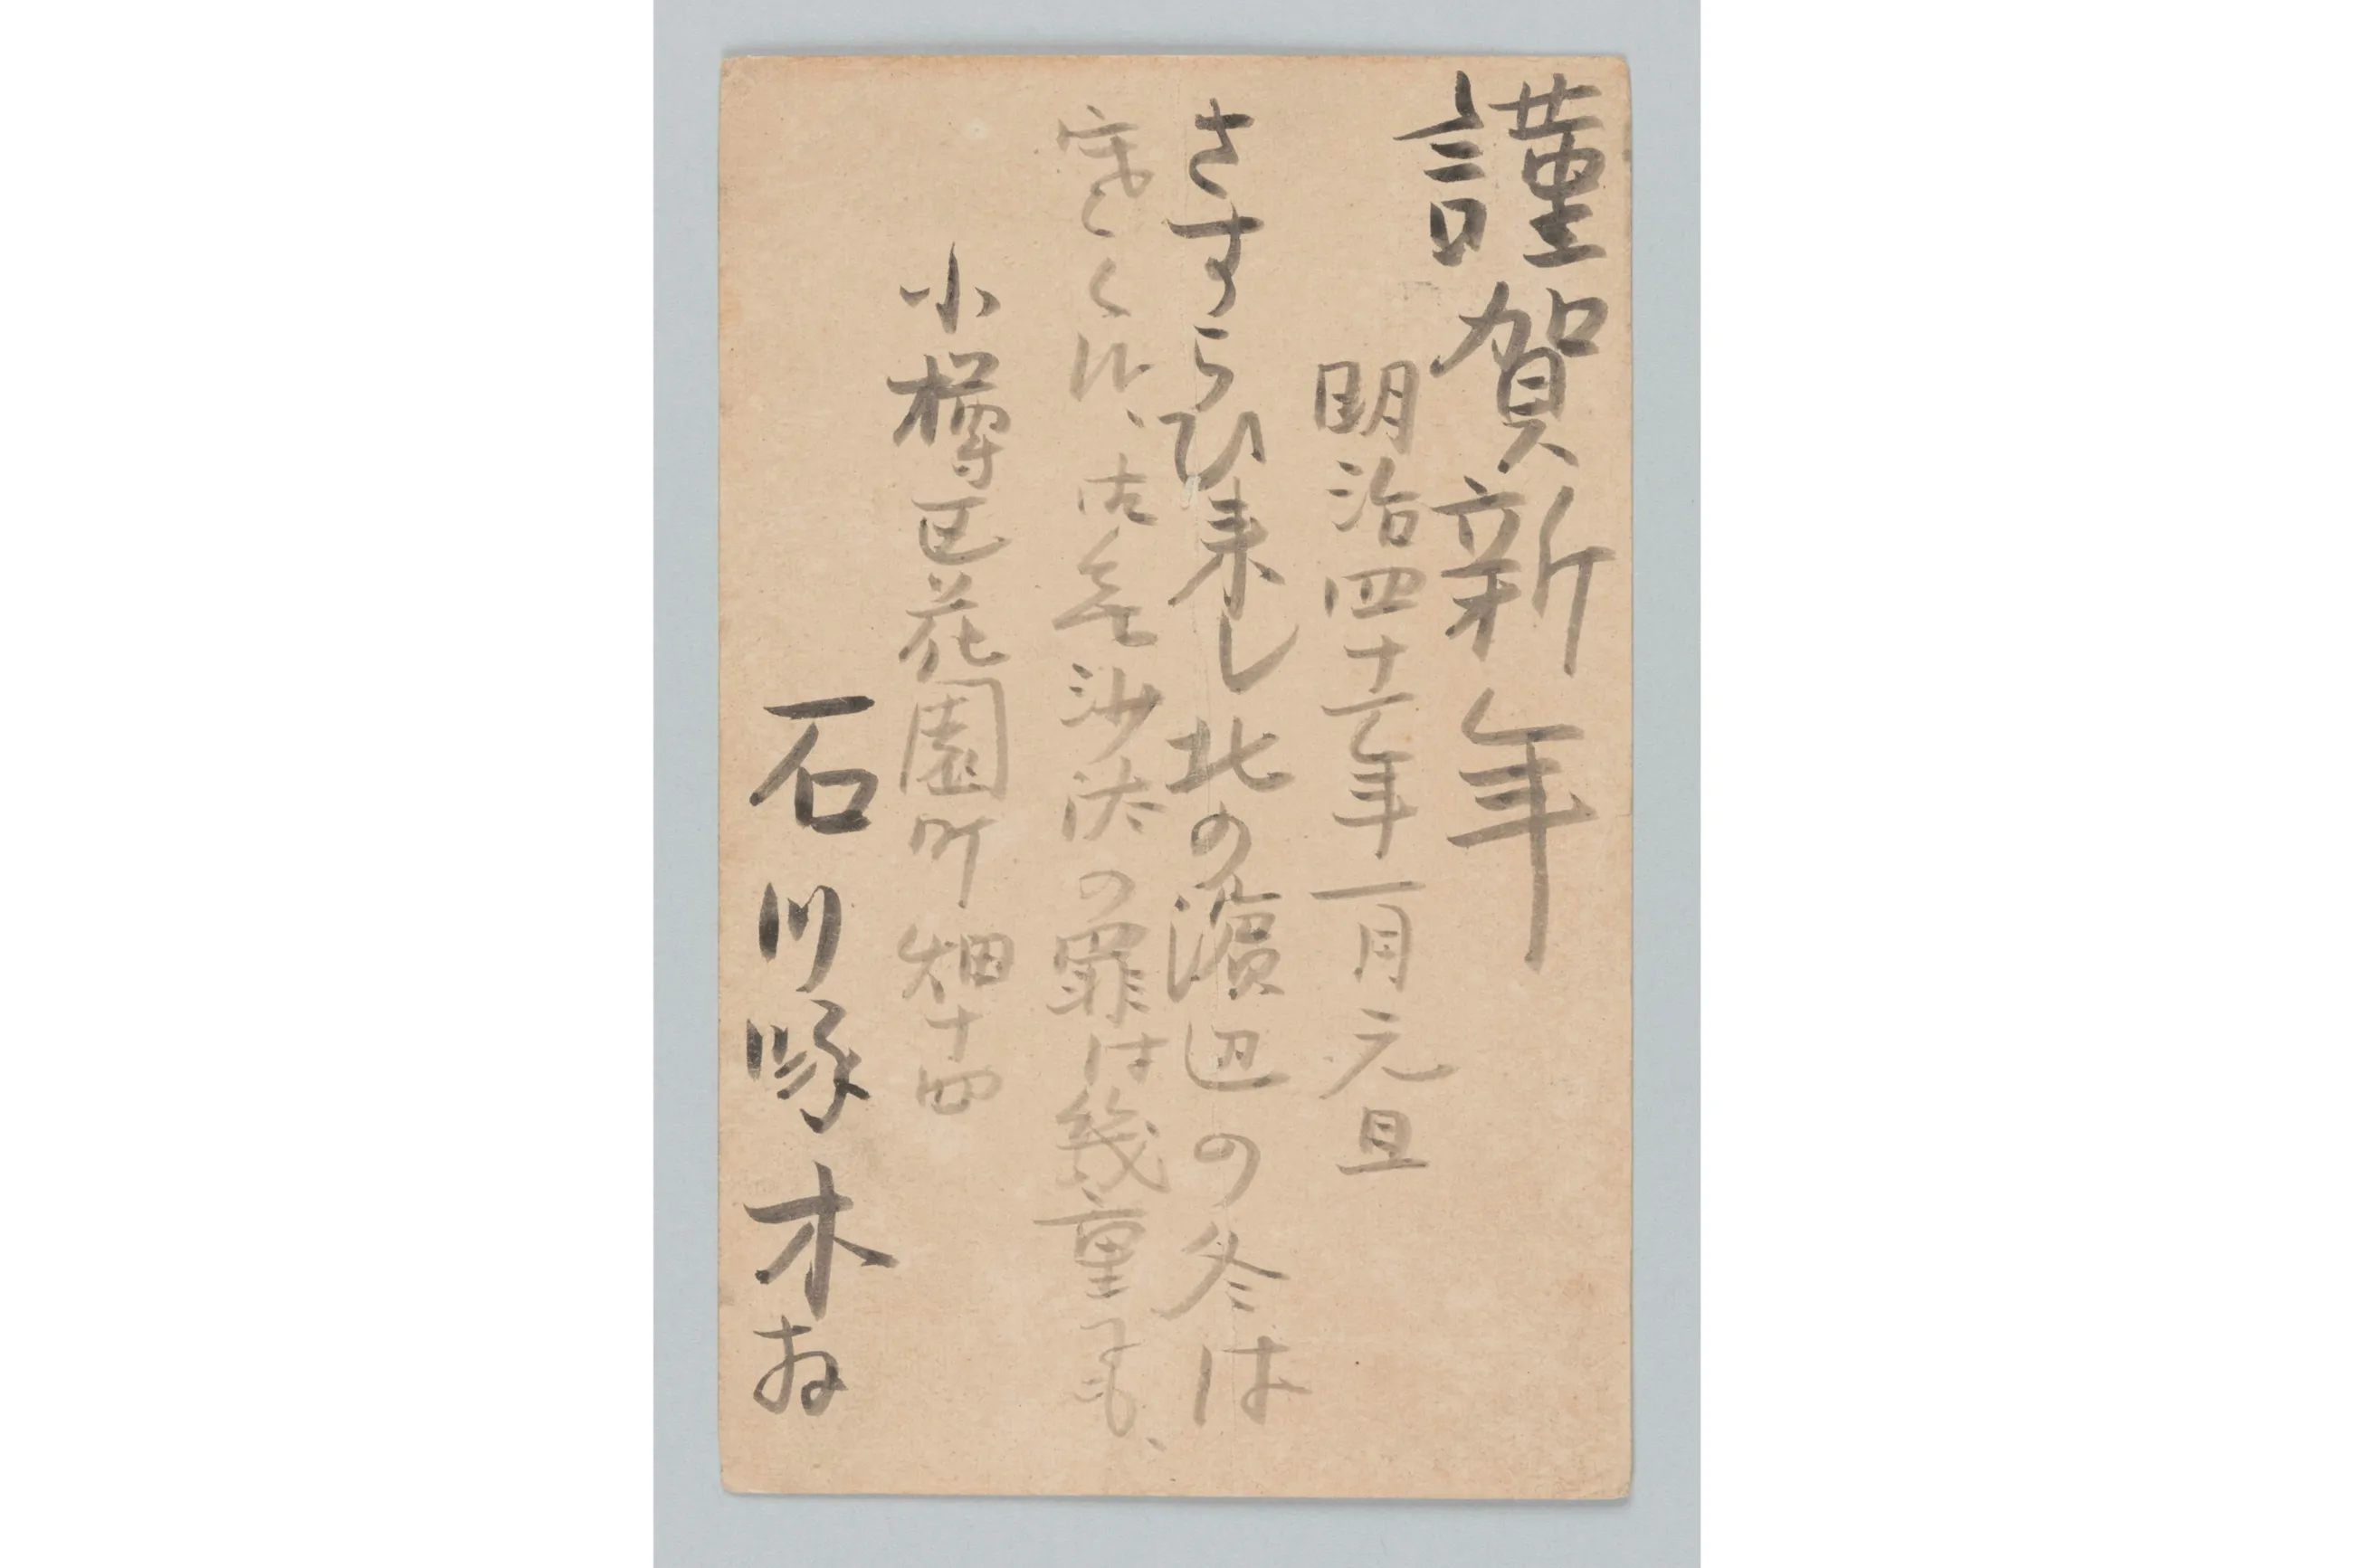 謹賀新年
明治四十一年一月元旦
さすらひ来し北の濱辺の冬は
く候、御無沙汰の罪は幾重にも、
小樽区花園町畑十四
石川啄木